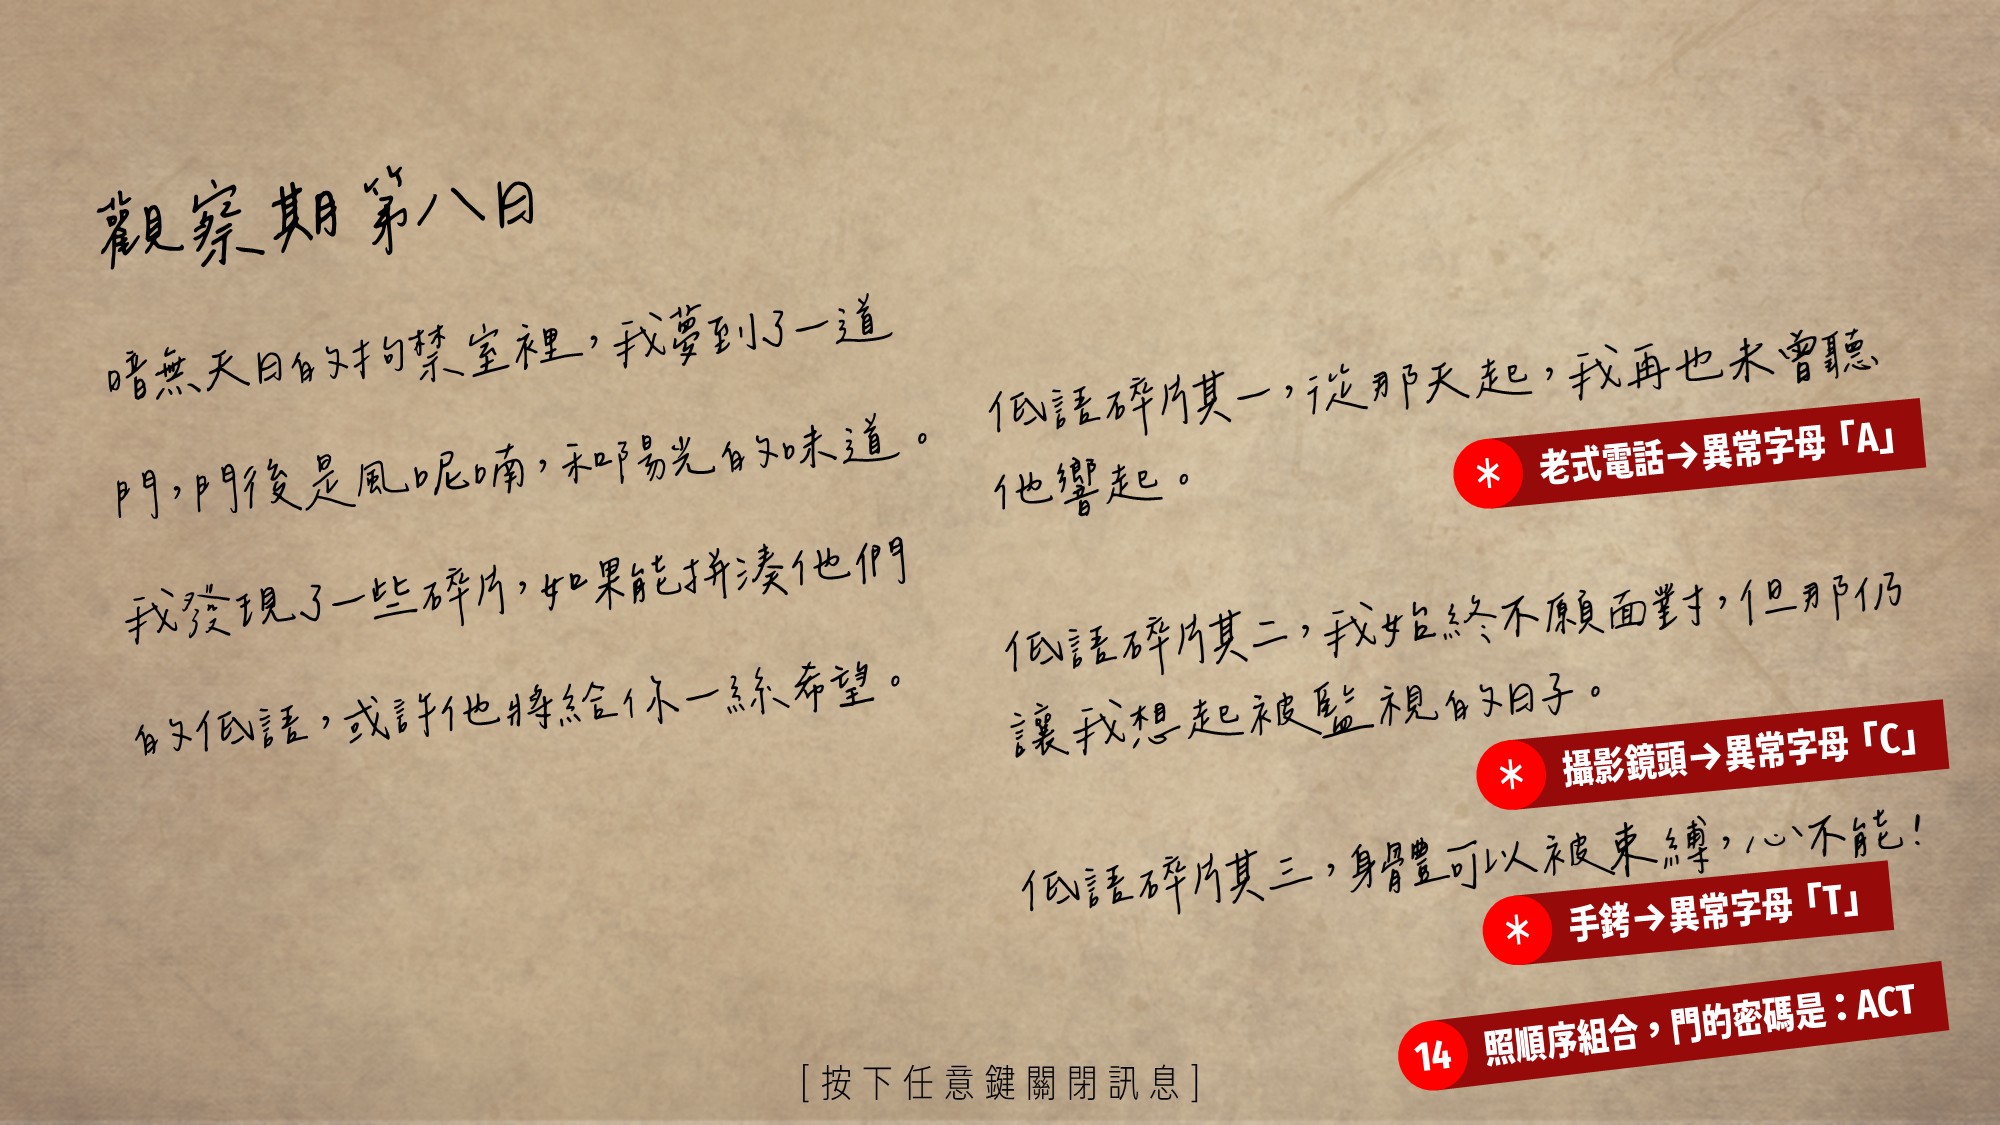 觀察期第八日
暗無天日的拘禁室裡，我夢到了一道
門，門後是風呢喃，和陽光的味道。
我發現了一些碎片，如果能拼湊他們
的低語，或許他將給你一絲希望。
低語碎片其一，從那天起，我再也未曾聽
他響起。
* 老式電話→異常字母「A」
低語碎片其二，我始終不願面對，但那仍
讓我想起被監視的日子。
* 攝影鏡頭→異常字母「C」
低語碎片其三，身體可以被束縛，心不能！
* 手銬→異常字母「T」
14 照順序組合，門的密碼是：ACT
[按下任意鍵關閉訊息]